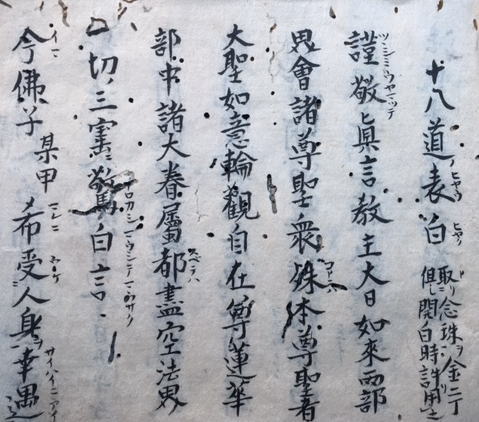 十八道表白 取念珠ヲ金二丁
但開白時許用之
謹敬眞言教主大日如來両部
界會諸尊聖衆殊本尊聖者
大聖如意輪観自在尊蓮華
部中諸大眷屬都盡空法界
一切三寳驚白言
今佛子 某甲 希受人身幸遇